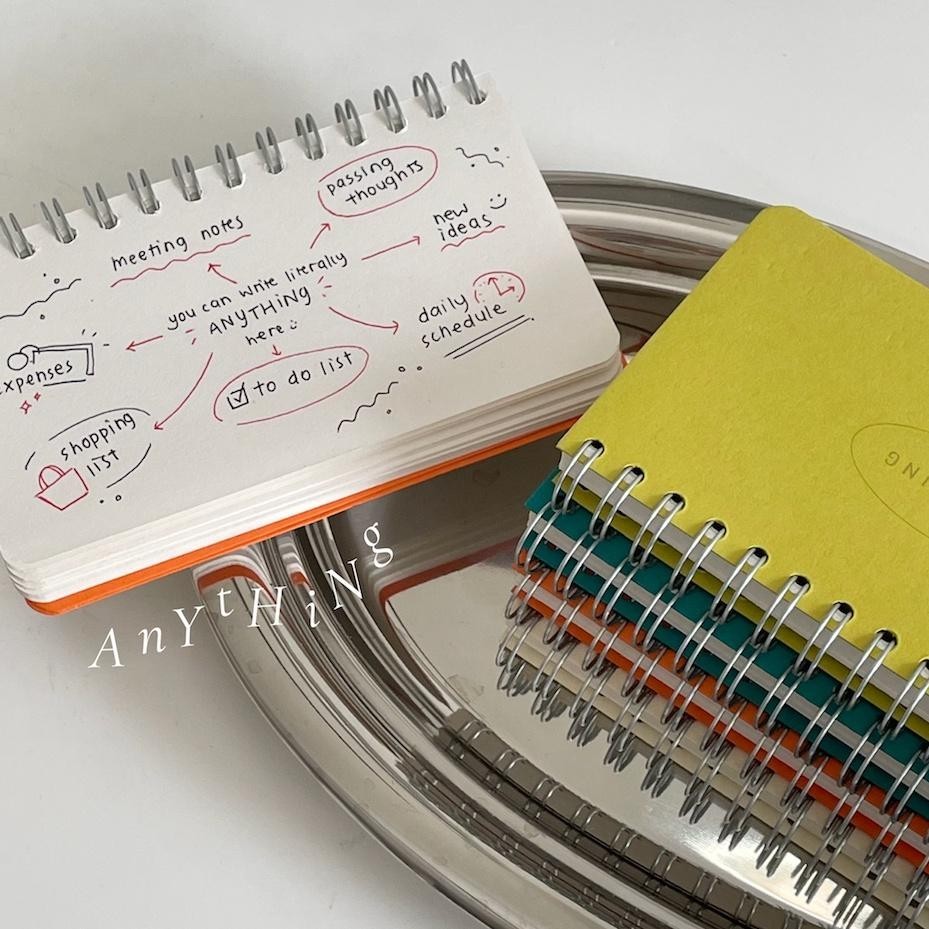 passing
thoughts
meeting notes
new
ideas
you can write literally
ANYTHING
here
daily
schedule
expenses
to do list
shopping
list
AnYtHiNg
ING